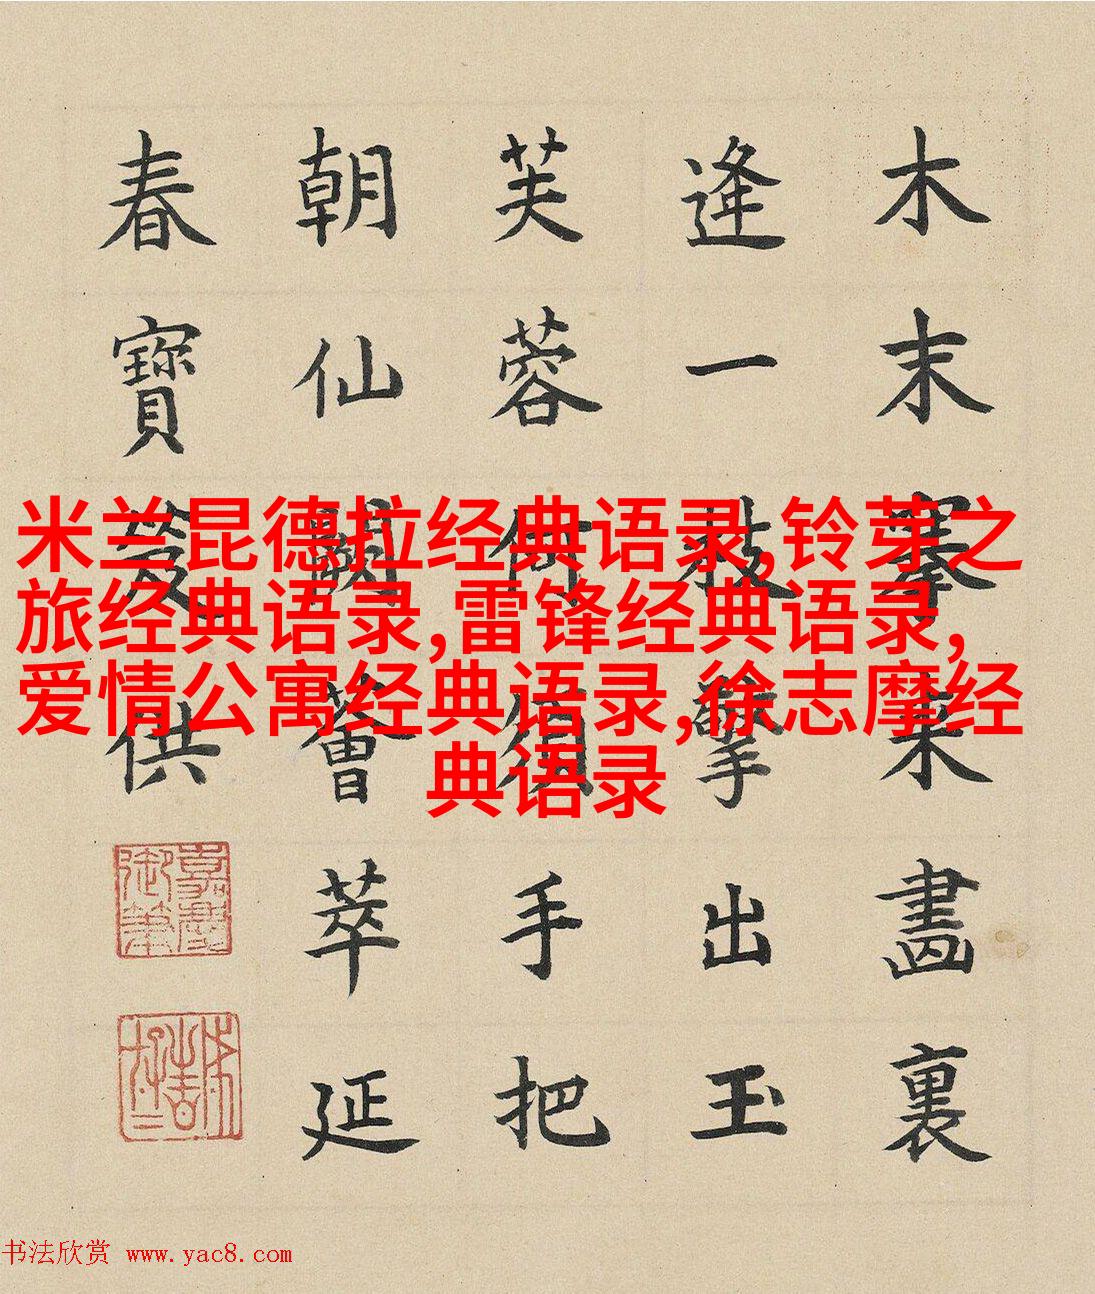 木末搴来畫裏
逢一枝擎出玉
芙蓉何須手把
朝仙闕薈萃延
春寶笈供
嘉慶御筆
米兰昆德拉经典语录,铃芽之
旅经典语录,雷锋经典语录,
爱情公寓经典语录,徐志摩经
典语录
书法欣赏 www.yac8.com